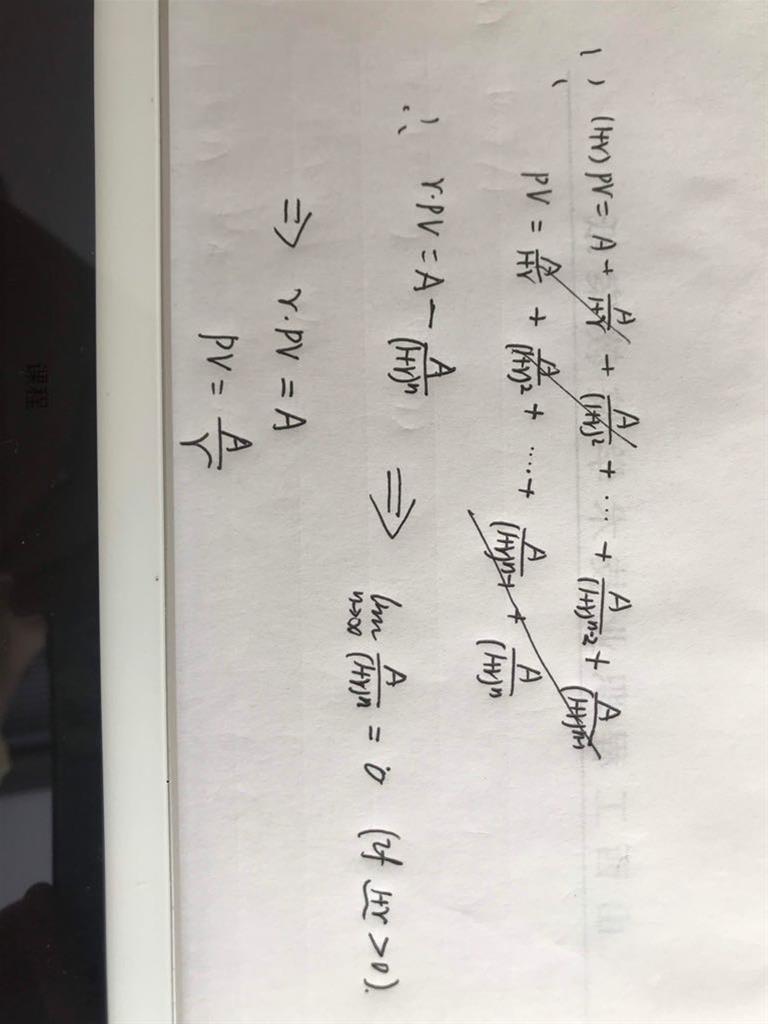 1) (1+r) PV = A + A/(1+r) + A/(1+r)^2 + ... + A/(1+r)^(n-2) + A/(1+r)^(n-1)
PV = A/(1+r) + A/(1+r)^2 + ... + A/(1+r)^(n-1) + A/(1+r)^n
∴ r·PV = A − A/(1+r)^n ⇒ lim n→∞ A/(1+r)^n = 0 (if 1+r > 0).
⇒ r·PV = A
PV = A/r
课程